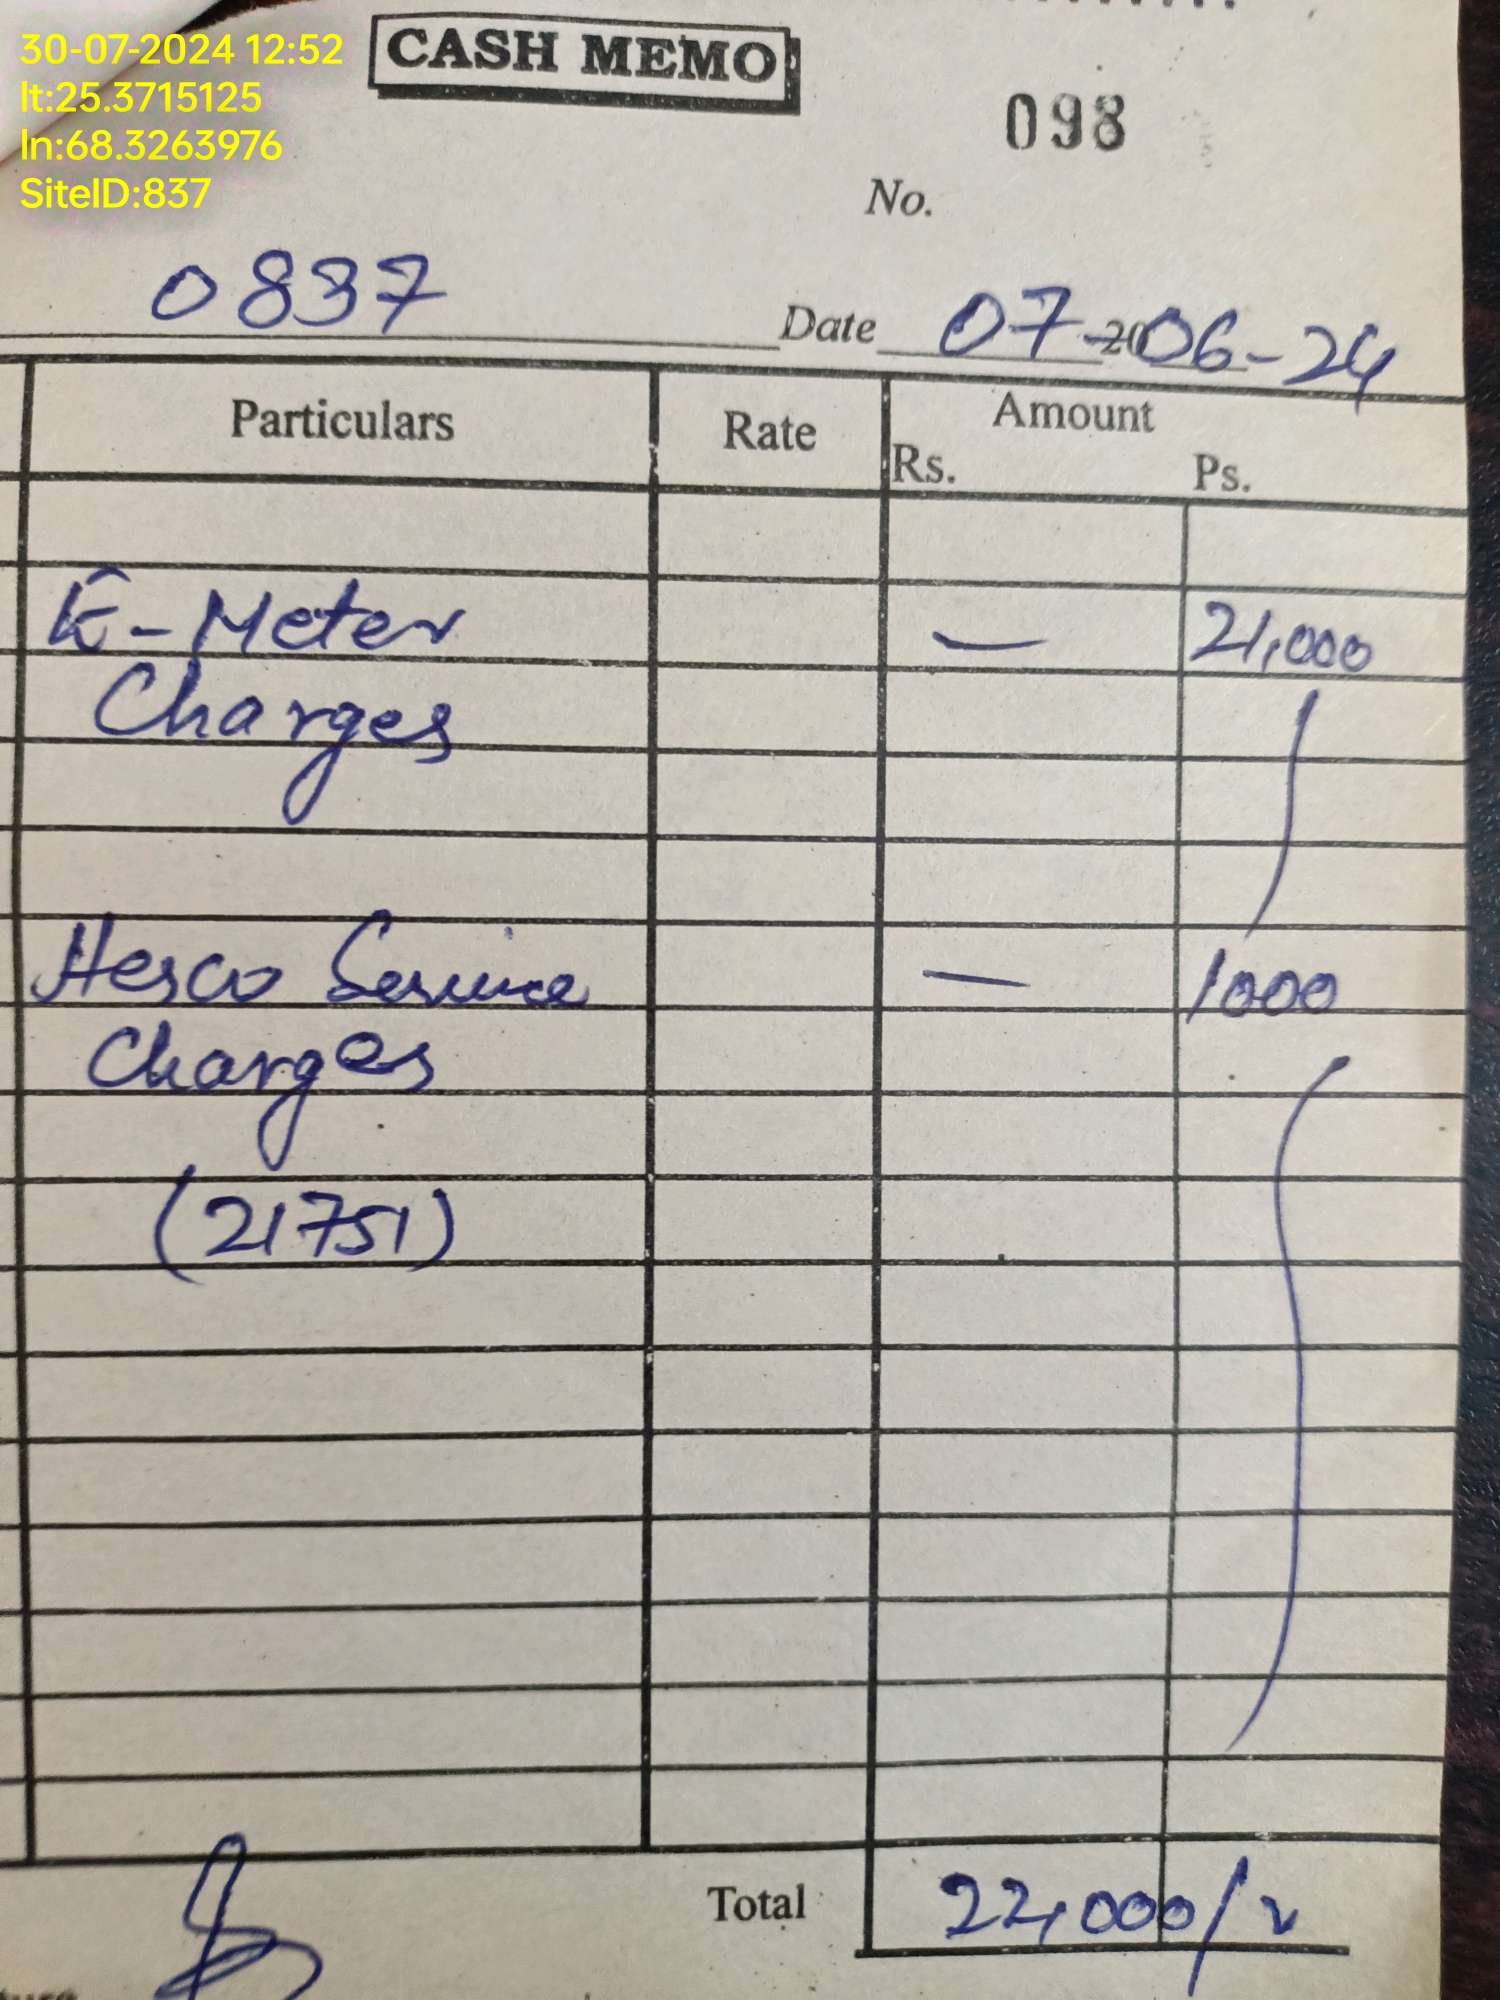 30-07-2024 12:52
lt:25.3715125
ln:68.3263976
SiteID:837
CASH MEMO
098
No.
0837
Date 07-06-24
Particulars Rate Amount
Rs. Ps.
E-Meter — 21,000
Charges
Hesco Service — 1000
Charges
(21751)
Total 22,000/